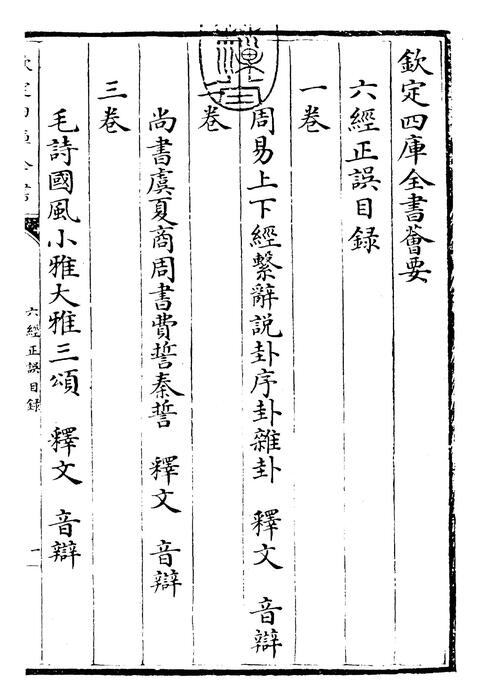 欽定四庫全書薈要
六經正誤目録
一卷
周易上下經繫辭說卦序卦雜卦　釋文　音辯
卷
尚書虞夏商周書費誓秦誓　釋文　音辯
三卷
毛詩國風小雅大雅三頌　釋文　音辯
六經正誤目録
一